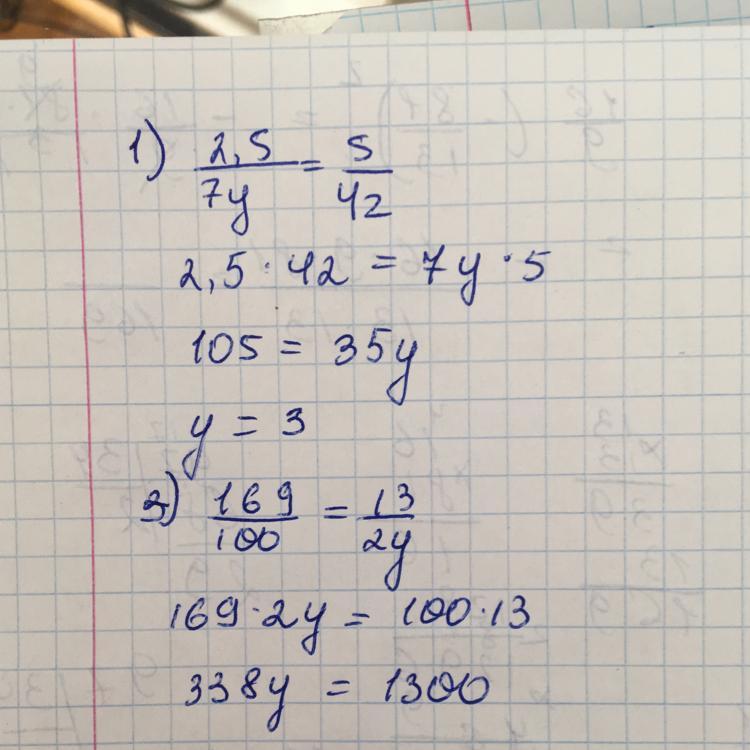 1) 2,5/7y = 5/42
2,5 · 42 = 7y · 5
105 = 35y
y = 3
3) 169/100 = 13/2y
169 · 2y = 100 · 13
338y = 1300